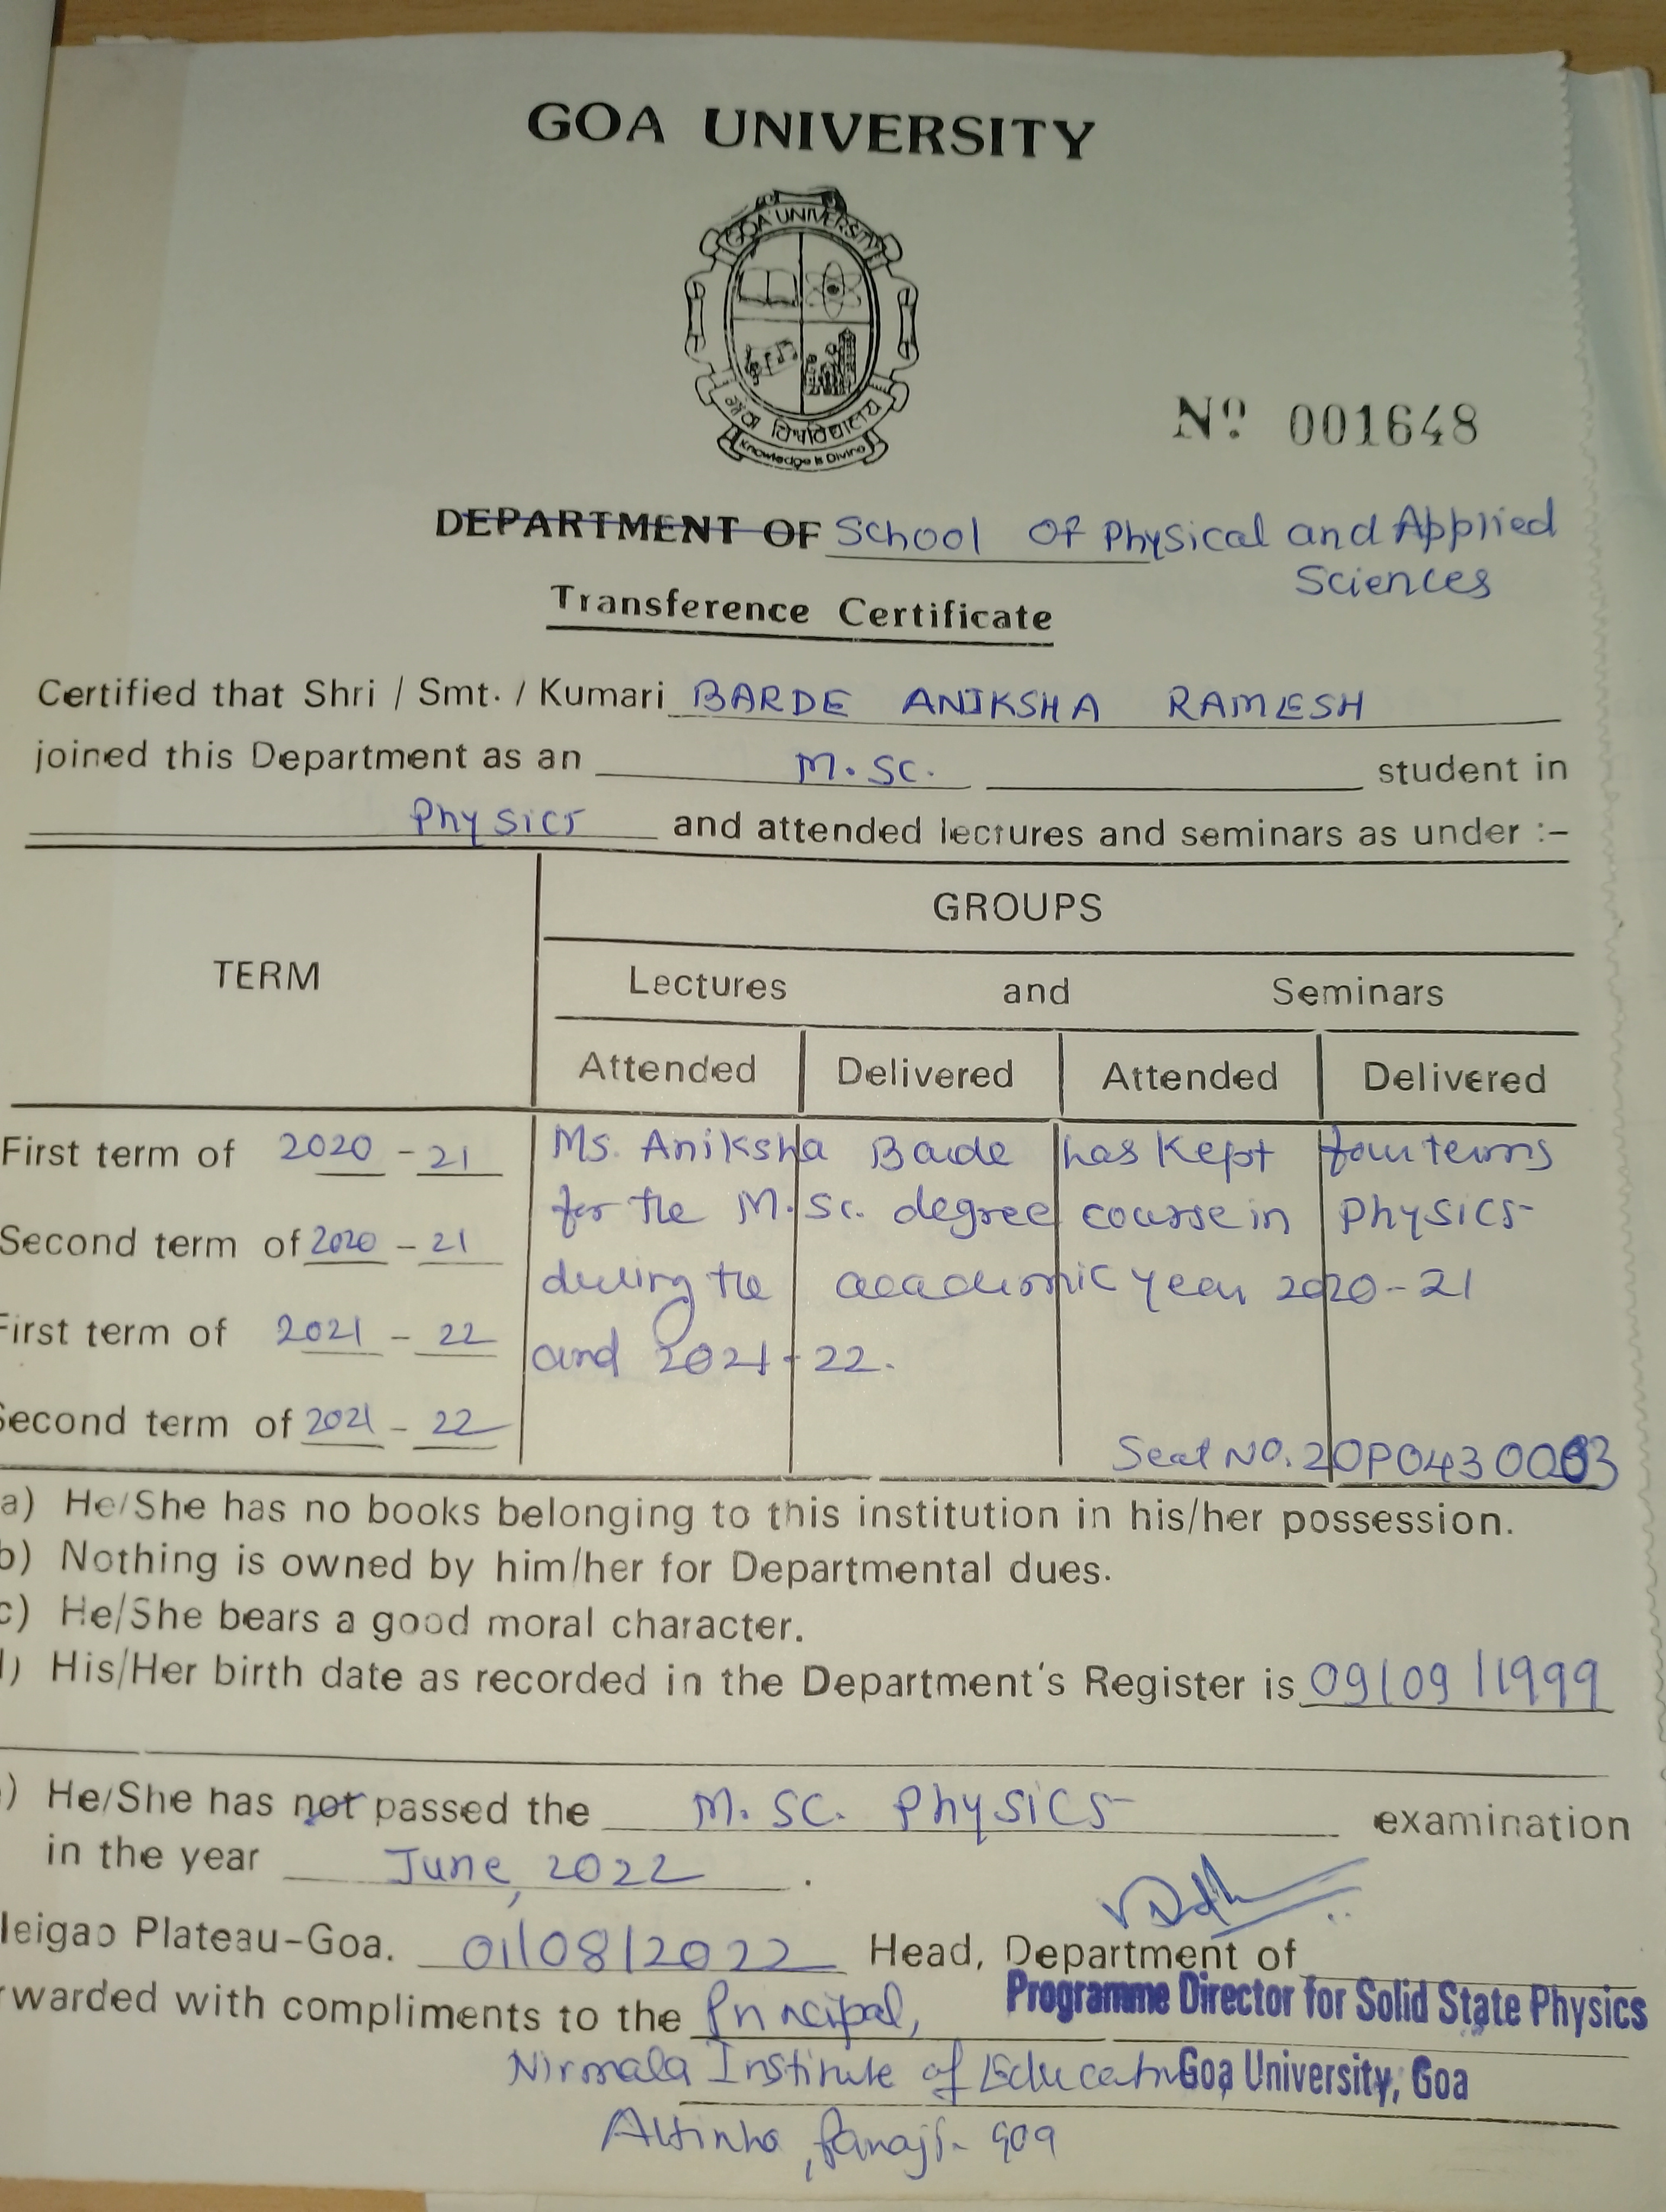 GOA UNIVERSITY
GOA UNIVERSITY
गोंय विश्वविद्यालय
Knowledge is Divine
Nº 001648
DEPARTMENT OF School Of Physical and Applied
Sciences
Transference Certificate
Certified that Shri / Smt. / Kumari BARDE ANIKSHA RAMESH
joined this Department as an M.Sc. student in
Physics and attended lectures and seminars as under :-
GROUPS
TERM
Lectures and Seminars
Attended Delivered Attended Delivered
First term of 2020 - 21
Second term of 2020 - 21
First term of 2021 - 22
Second term of 2021 - 22
Ms. Aniksha Barde has kept four terms
for the M.Sc. degree course in Physics
during the academic year 2020-21
and 2021-22.
Seat No. 20P0430003
a) He/She has no books belonging to this institution in his/her possession.
b) Nothing is owned by him/her for Departmental dues.
c) He/She bears a good moral character.
) His/Her birth date as recorded in the Department's Register is 09/09/1999
) He/She has not passed the M.Sc. Physics examination
in the year June, 2022.
leigao Plateau-Goa. 01/08/2022 Head, Department of
rwarded with compliments to the Principal,
Programme Director for Solid State Physics
Nirmala Institute of Education
Goa University, Goa
Altinho, Panaji- Goa